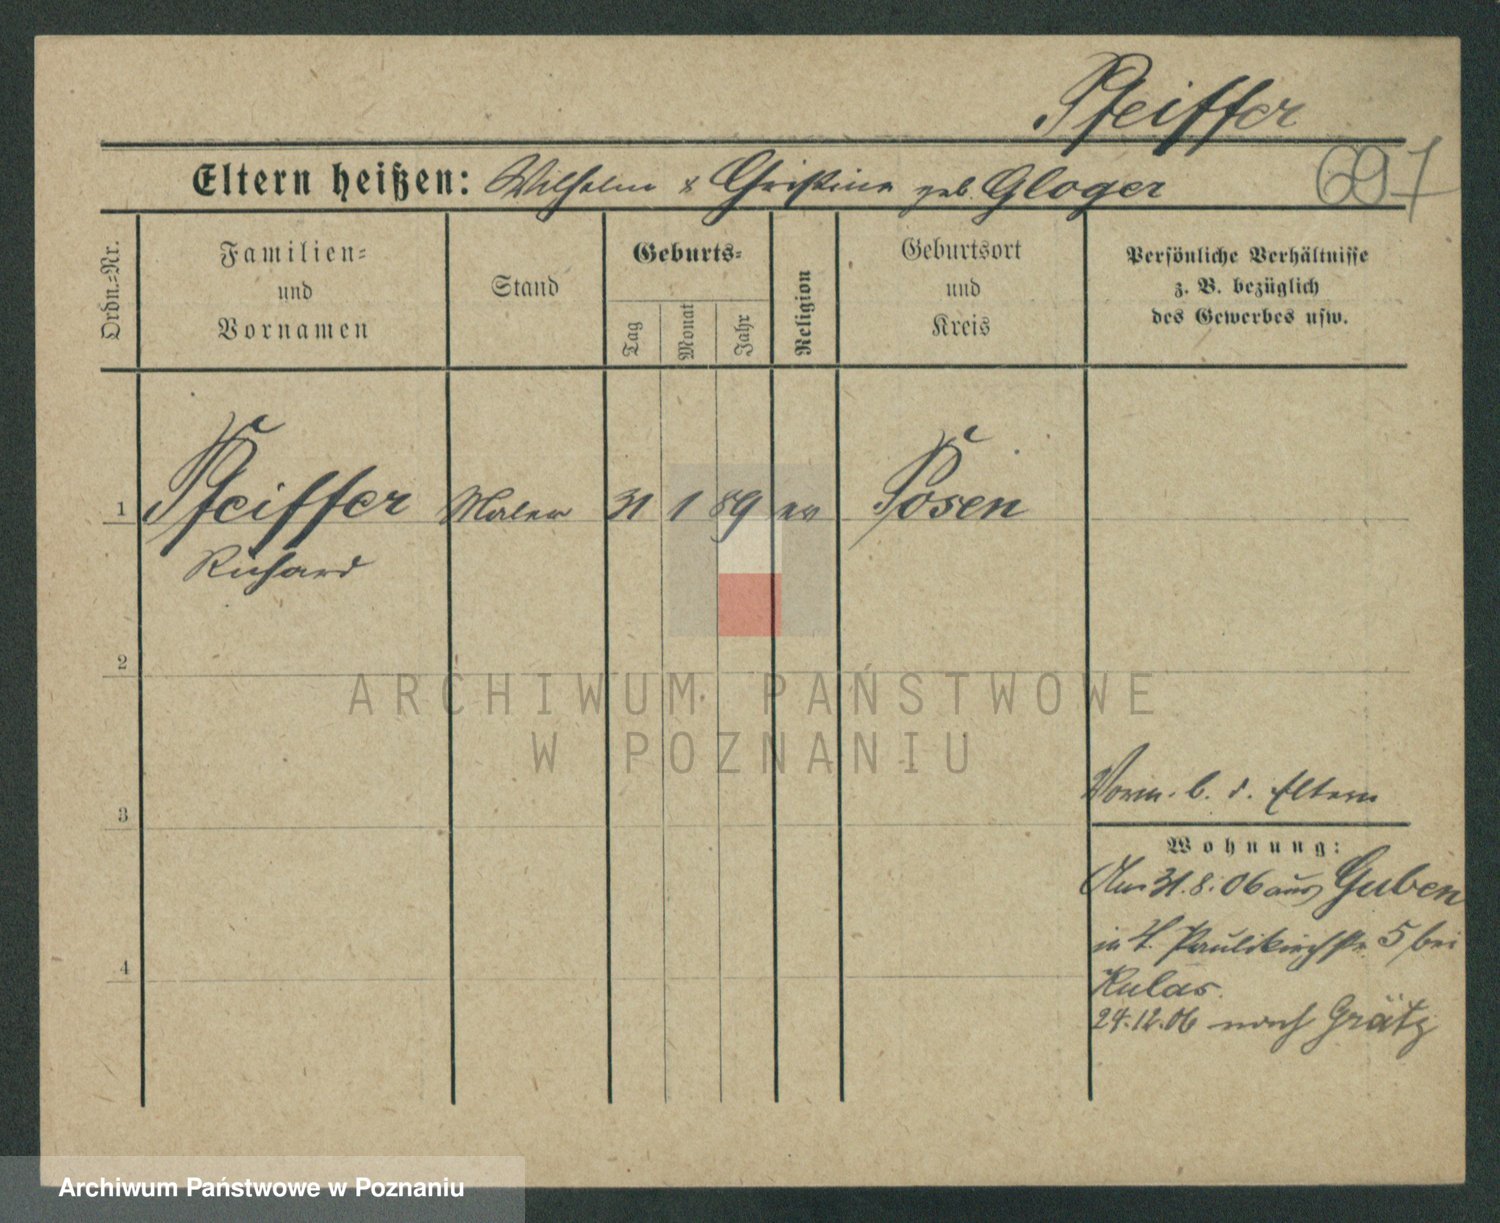 Pfeiffer
697
Eltern heißen: Wilhelm & Christine geb. Gloger
Ordn.-Nr.
Familien-
und
Vornamen
Stand
Geburts-
Tag
Monat
Jahr
Religion
Geburtsort
und
Kreis
Persönliche Verhältnisse
z. B. bezüglich
des Gewerbes usw.
1 Pfeiffer Maler 31 1 89 ev Posen
Richard
2
ARCHIWUM PAŃSTWOWE
W POZNANIU
Vorm. b. d. Eltern
3
Wohnung:
Am 31.8.06 aus Guben
in 4. Paulikirchstr. 5 bei
4
Kulas.
24.12.06 nach Grätz
Archiwum Państwowe w Poznaniu